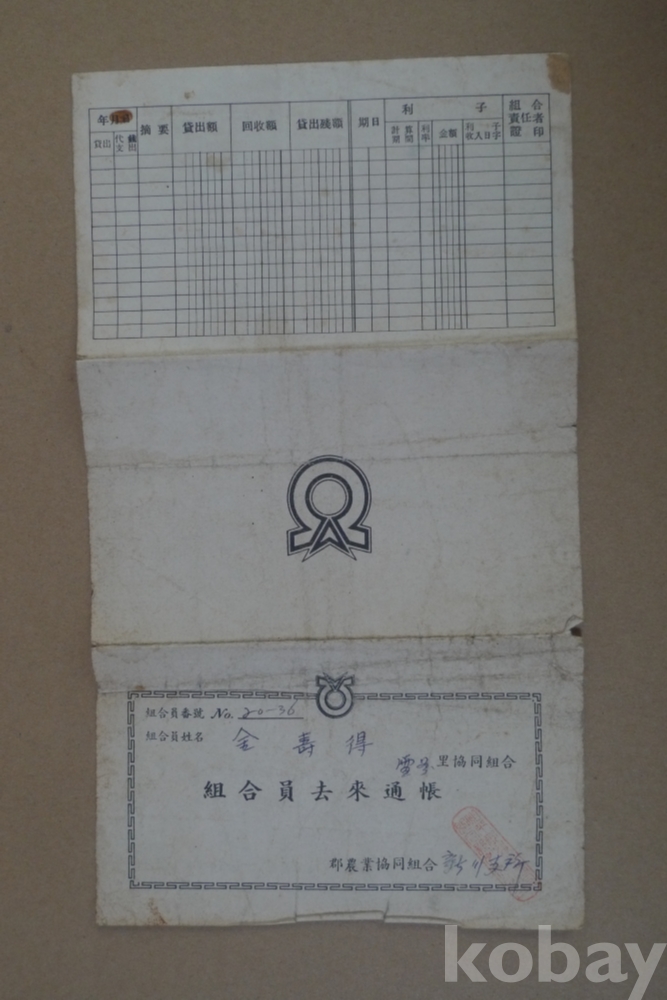 年月日 摘要 貸出額 回收額 貸出殘額 期日 利子 組合責任者證印
貸出 計算期間 利率 金額
組合員番號 No. 20-36
組合員姓名 金壽得
里協同組合
組合員去來通帳
郡農業協同組合 新川支所
kobay